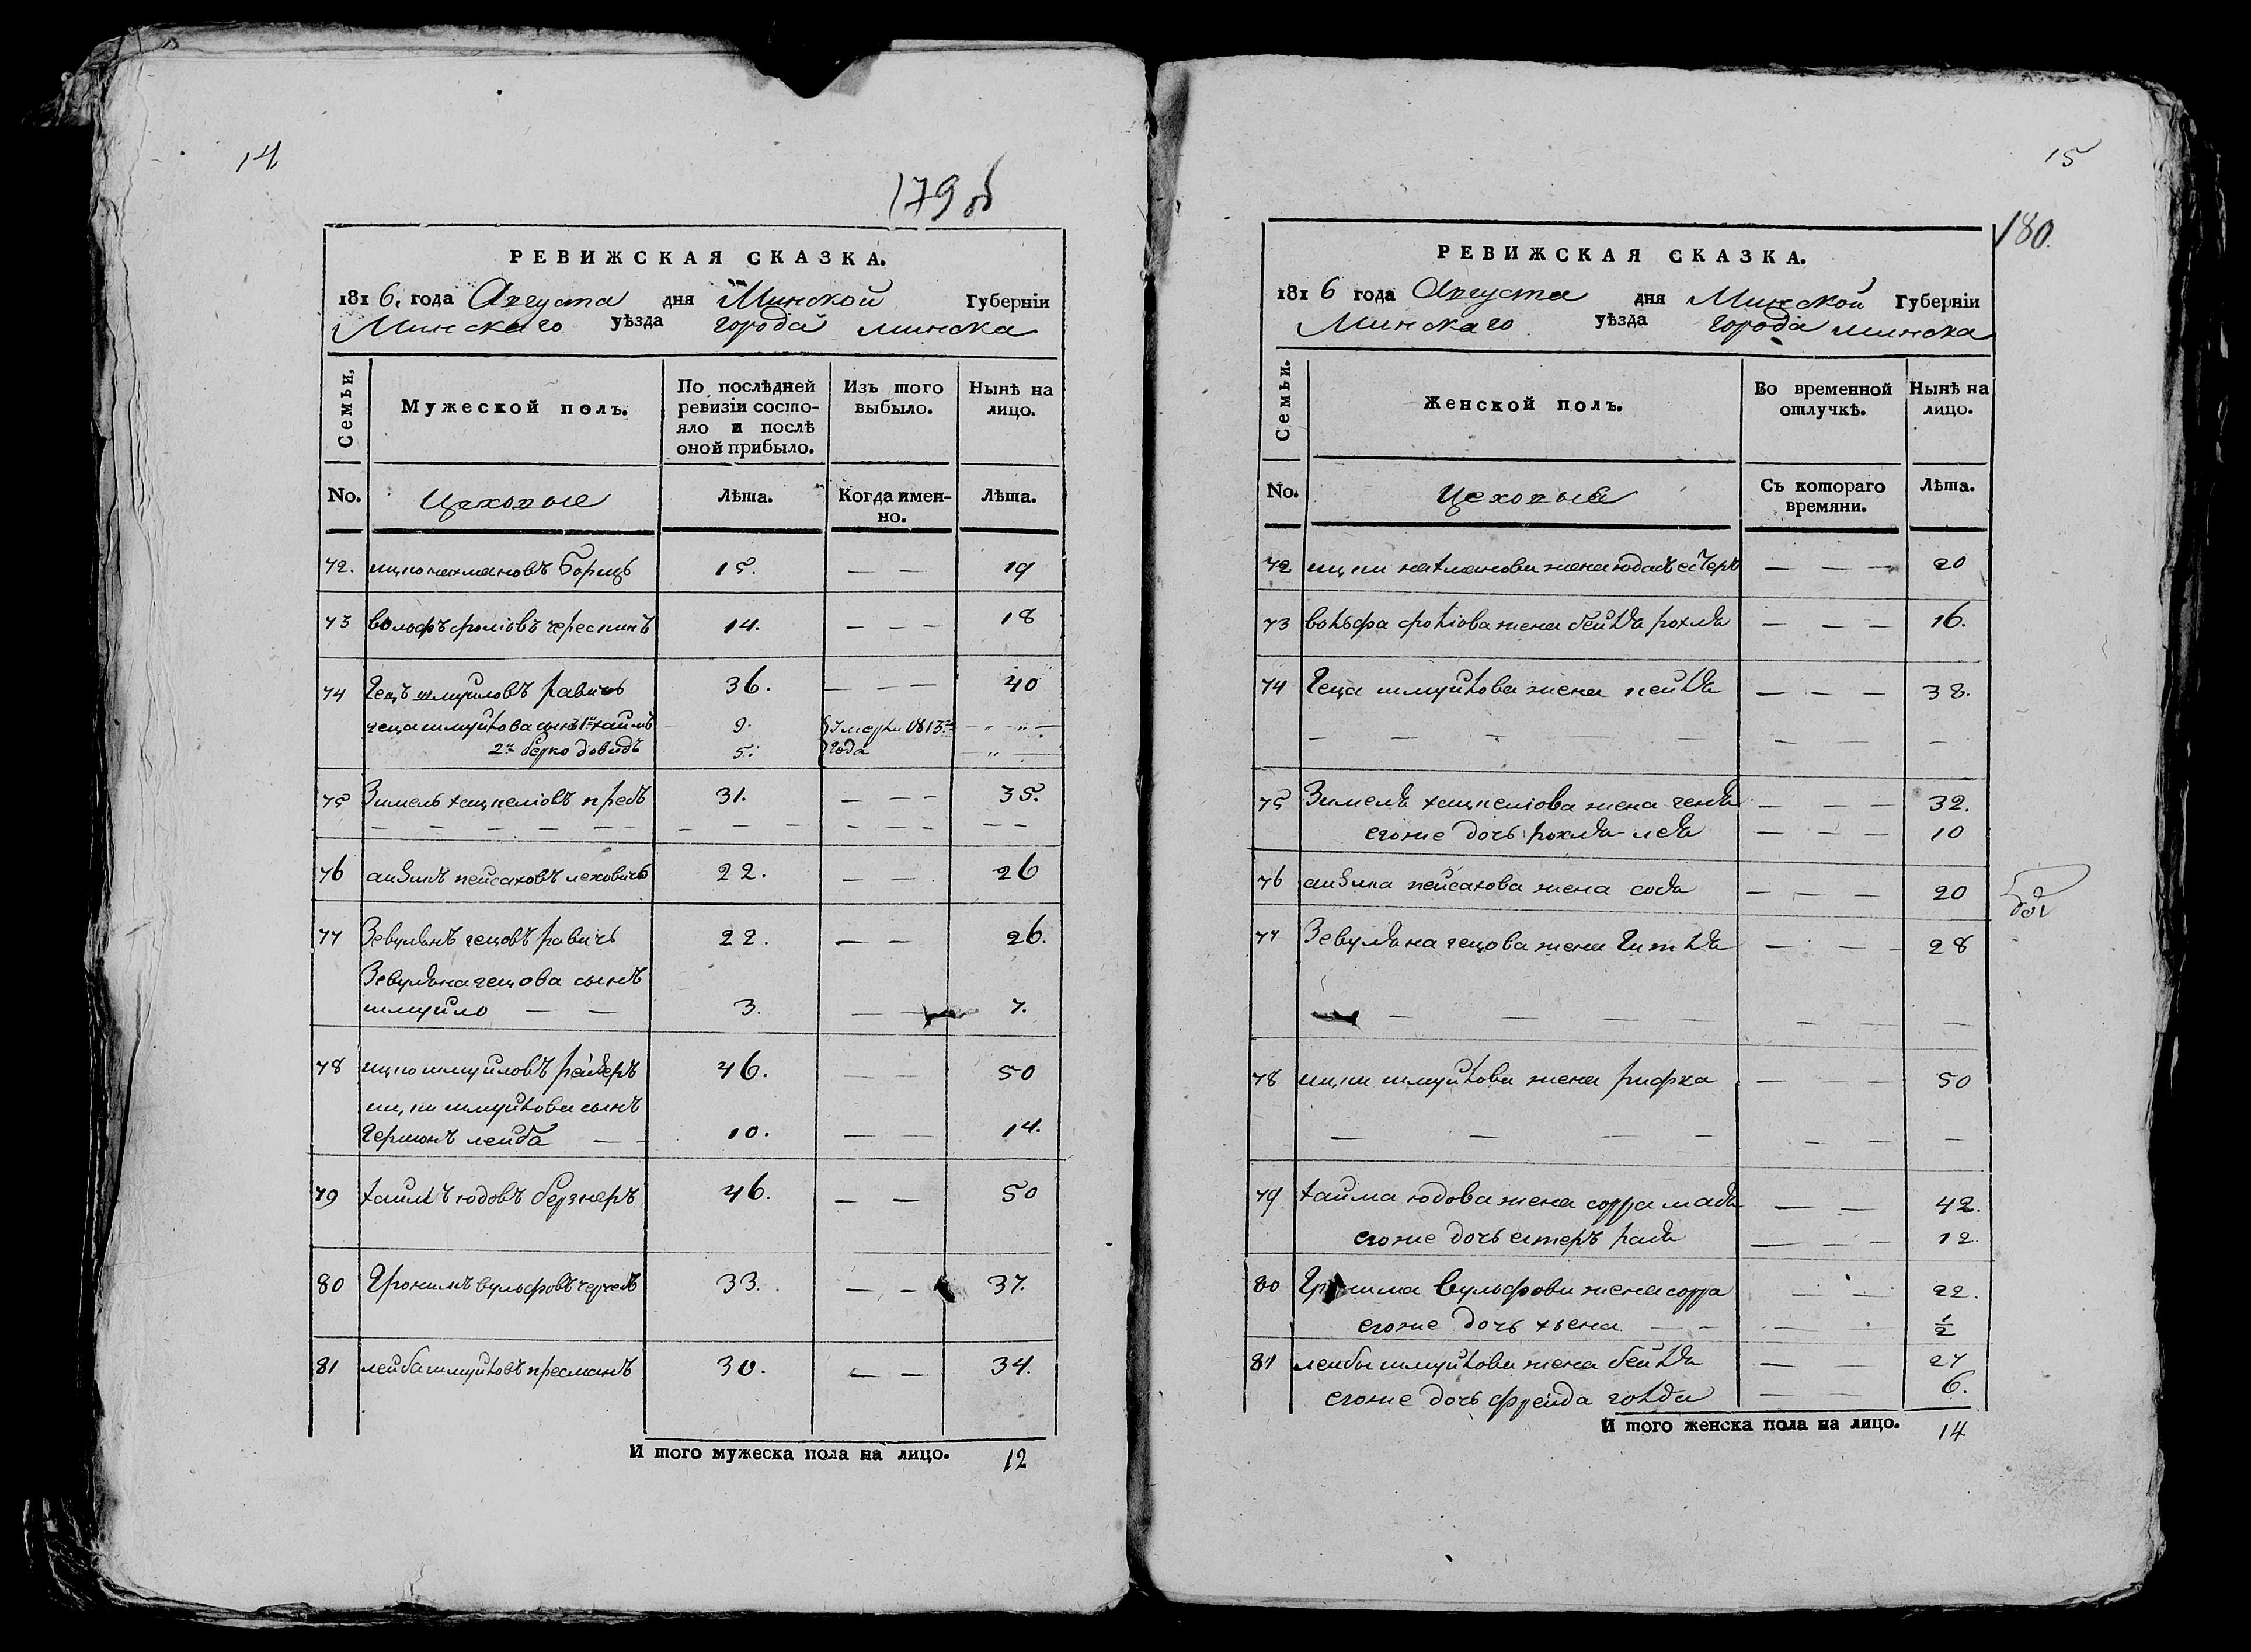 14
179 об
РЕВИЖСКАЯ СКАЗКА.
1816. года Августа дня Минской Губерніи
Минскаго уѣзда города минска
Семьи,
Мужеской полъ.
По послѣдней ревизіи состо-
яло и послѣ
оной прибыло.
Изъ того
выбыло.
Нынѣ на
лицо.
No. Цеховые Лѣта. Когда имен-
но. Лѣта.
72. ицко нахмановъ Борицъ 15. — — 19
73 волфъ фроліовъ череспинъ 14. — — — 18
74 Гецъ шмуйловъ равичъ 36. — — — 40
геца шмуйлова сынъ 1й хаимъ 9. Умерли 1813го — " " —
2й берко довидъ 5. года "
75 Зимель хацкеліовъ 31. — — — 35.
— — — — — — — — — — — — — — —
76 анзилъ пейсаховъ леховичъ 22. — — 26
77 Зевулянъ гецовъ равичъ 22. — — 26.
Зевуляна гецова сынъ
шмуйло — — 3. — — 7.
78 ицко шмуйловъ рейдеръ 46. — — 50
ицки шмуйлова сынъ
Гершонъ лейба — — 10. — — 14.
79 хаимъ юдовъ берзнеръ 46. — — 50
80 Гронимъ вульфовъ 33. — — 37.
81 лейба шмуйловъ пресманъ 30. — — 34.
И того мужеска пола на лицо. 12
15
180.
РЕВИЖСКАЯ СКАЗКА.
1816 года Августа дня Минской Губерніи
Минскаго уѣзда города минска
Семьи.
Женской полъ.
Во временной
отлучкѣ.
Нынѣ на
лицо.
No. Цеховые Съ котораго
времяни. Лѣта.
72 ицки нахманова жена естеръ — — — 20
73 вольфа фроліова жена бейля рохля — — — 16.
74 Геца шмуйлова жена пейля — — — 38.
— — — — — — — — —
75 Зимеля хацкеліова жена геня — — — 32.
егоже дочь рохля лея — — — 10
76 анзила пейсахова жена соя — — — 20
77 Зевуляна гецова жена Гитля — — — 28
— — — — — — — —
78 ицки шмуйлова жена рифка — — — 50
— — — — — — — —
79 хаима юдова жена сорра — — 42.
егоже дочь естеръ раля — — — 12
80 Гронима вульфова жена сорра — — 22.
егоже дочь хьена — — — — 1/2
81 лейбы шмуйлова жена бейля — — 27
егоже дочь фрейда голда — — 6.
И того женска пола на лицо. 14